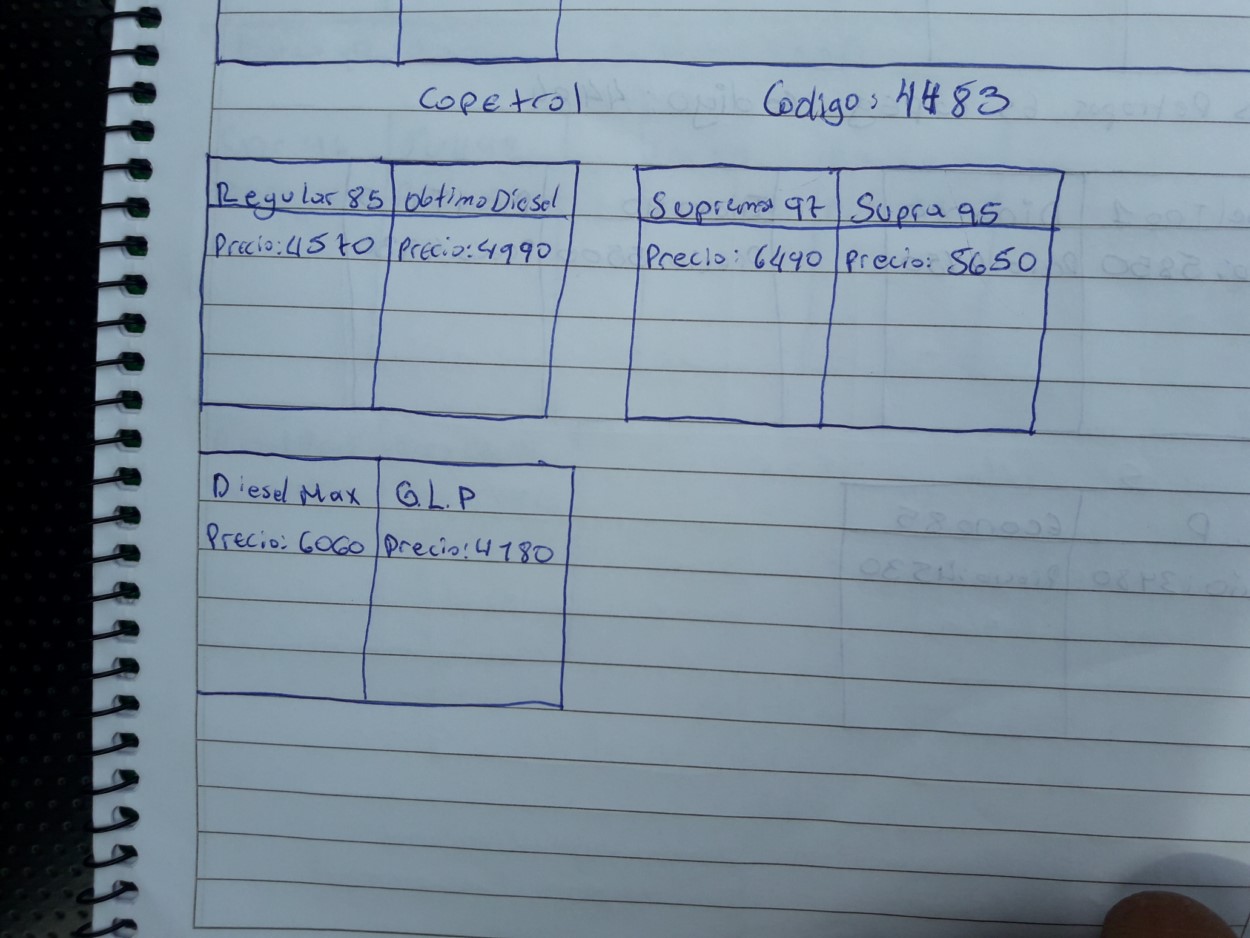 Copetrol Codigo: 4483
Regular 85 Obtimo Diesel Suprema 97 Supra 95
Precio: 4570 Precio: 4990 Precio: 6490 Precio: 5650
Diesel Max G.L.P
Precio: 6060 Precio: 4180